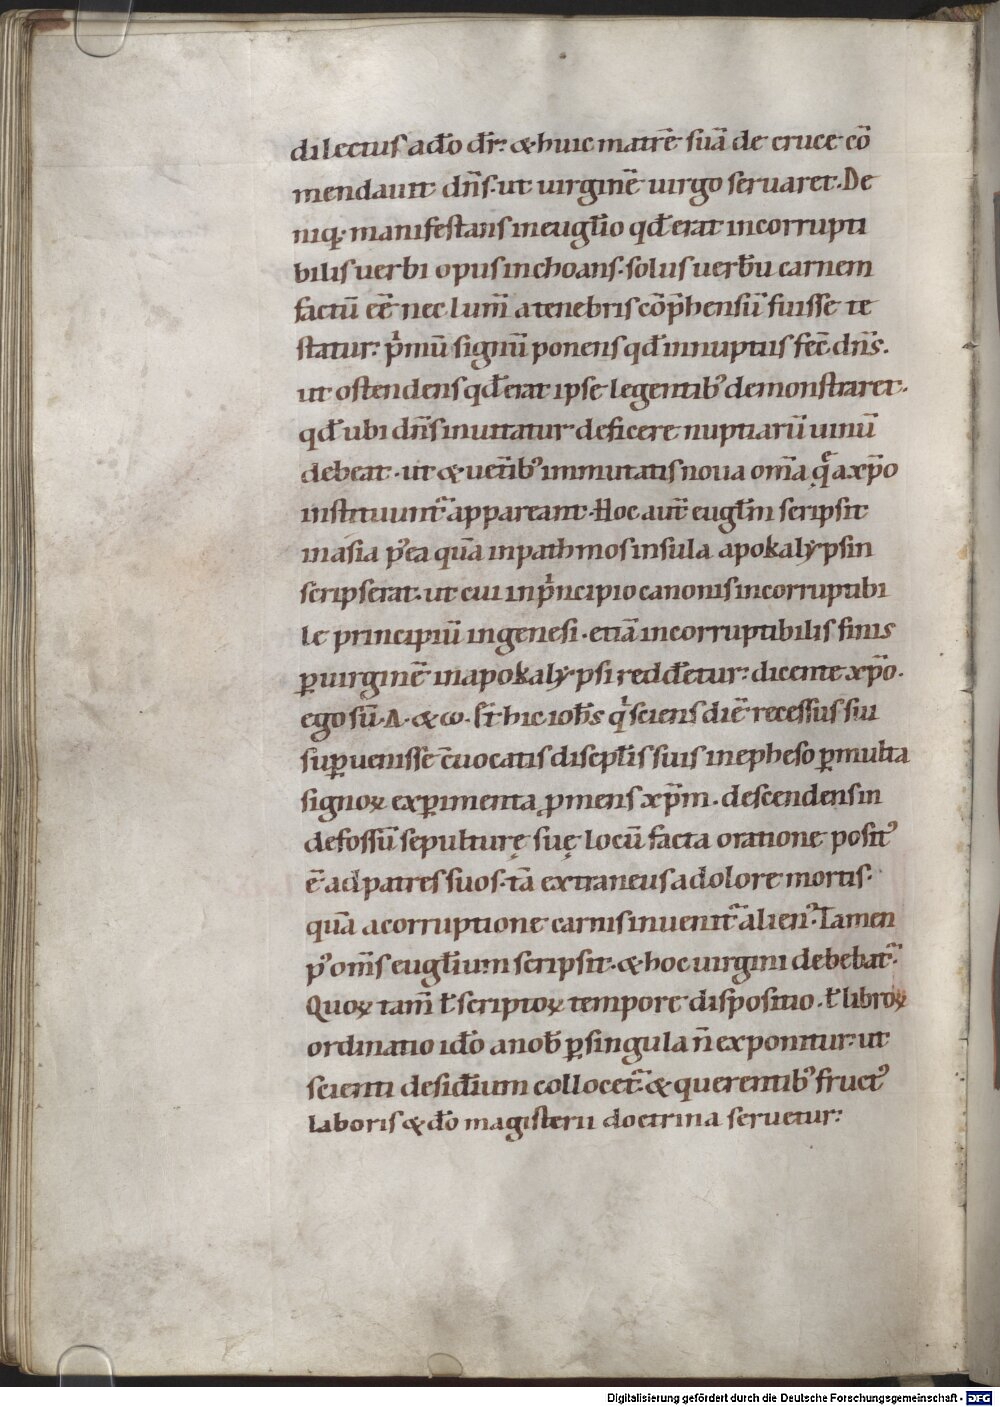 dilectus ado dr̄: & huic matrē suā de cruce cō
mendauit dn̄s. ut uirginē uirgo seruaret. De
niq; manifestans in eugl̄io qd̄ erat incorrupti
bilis uerbi opus inchoans. solus uerbū carnem
factū eē nec lum̄ a tenebris cōp̄hensū fuisse te
statur: p̄mū signū ponens qd̄ in nuptiis fec̄ dn̄s.
ut ostendens qd̄ erat ipse legentib; demonstraret.
qd̄ ubi dn̄s inuitatur deficere nuptiarū uinū
debeat. ut & ueterib; immutatis noua om̄a q̄ a xp̄o
instituunt̄ appareant. Hoc aut̄ eugl̄m scripsit
in asia p'ea quā in pathmos insula apokalypsin
scripserat. ut cui in p̄ncipio canonis incorruptibi
le principiū in genesi. etiā incorruptibilis finis
ꝑ uirginē in apokalypsi redd̄etur: dicente xp̄o.
ego sū. A. & ω. s̄t hic ioh̄s q̇ sciens diē recessus sui
suꝑuenisse c̄uocatis discipl̄is suis in epheso ꝑ multa
signoꝝ exꝑimenta ꝓmens xp̄m. descendens in
defossū sepulturę suę locū facta oratione posit'
ē ad patres suos. tā extraneus a dolore mortis.
quā a corruptione carnis inuenit̄ alien'. Tamen
p' om̄s eugl̄ium scripsit. & hoc uirgini debebat̄.
Quoꝝ tam̄ t̄ scriptoꝝ tempore dispositio. t̄ libroꝝ
ordinatio id̄o a nob̄ ꝑ singula n̄ exponitur: ut
scienti desid̄ium collocet̄. & querentib; fruct'
laboris & d̄o magisterii doctrina seruetur:
Digitalisierung gefördert durch die Deutsche Forschungsgemeinschaft - DFG